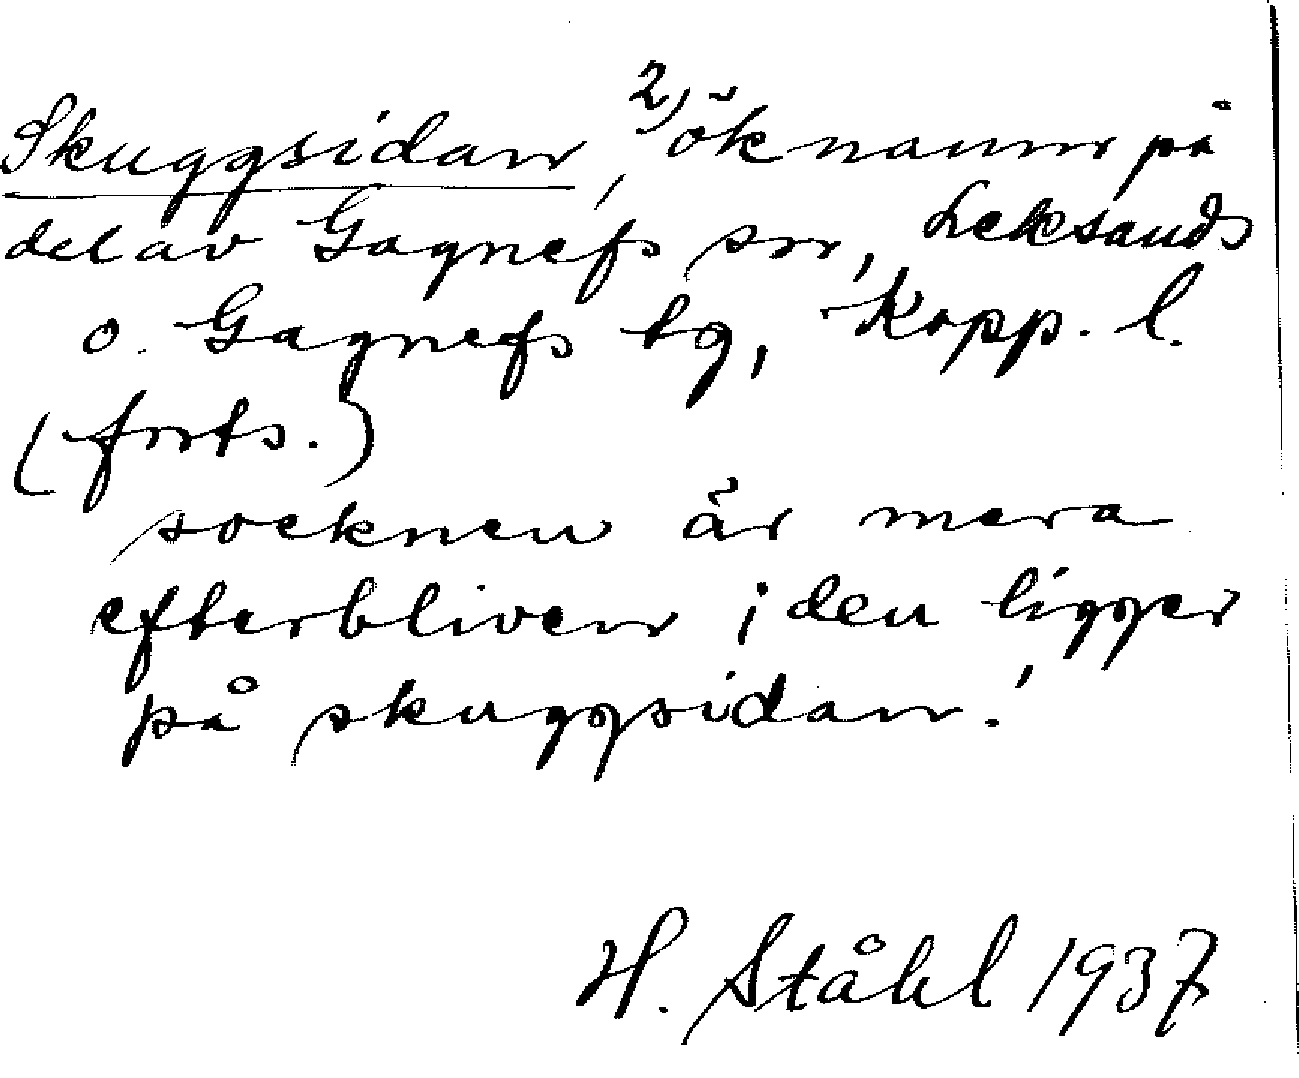 Skuggsidan, 2) öknamn på
del av Gagnefs sn, Leksands
o. Gagnefs tg, Kopp. l.
(forts.)
socknen är mera
efterbliven; den ligger
på skuggsidan!
H. Ståhl 1937